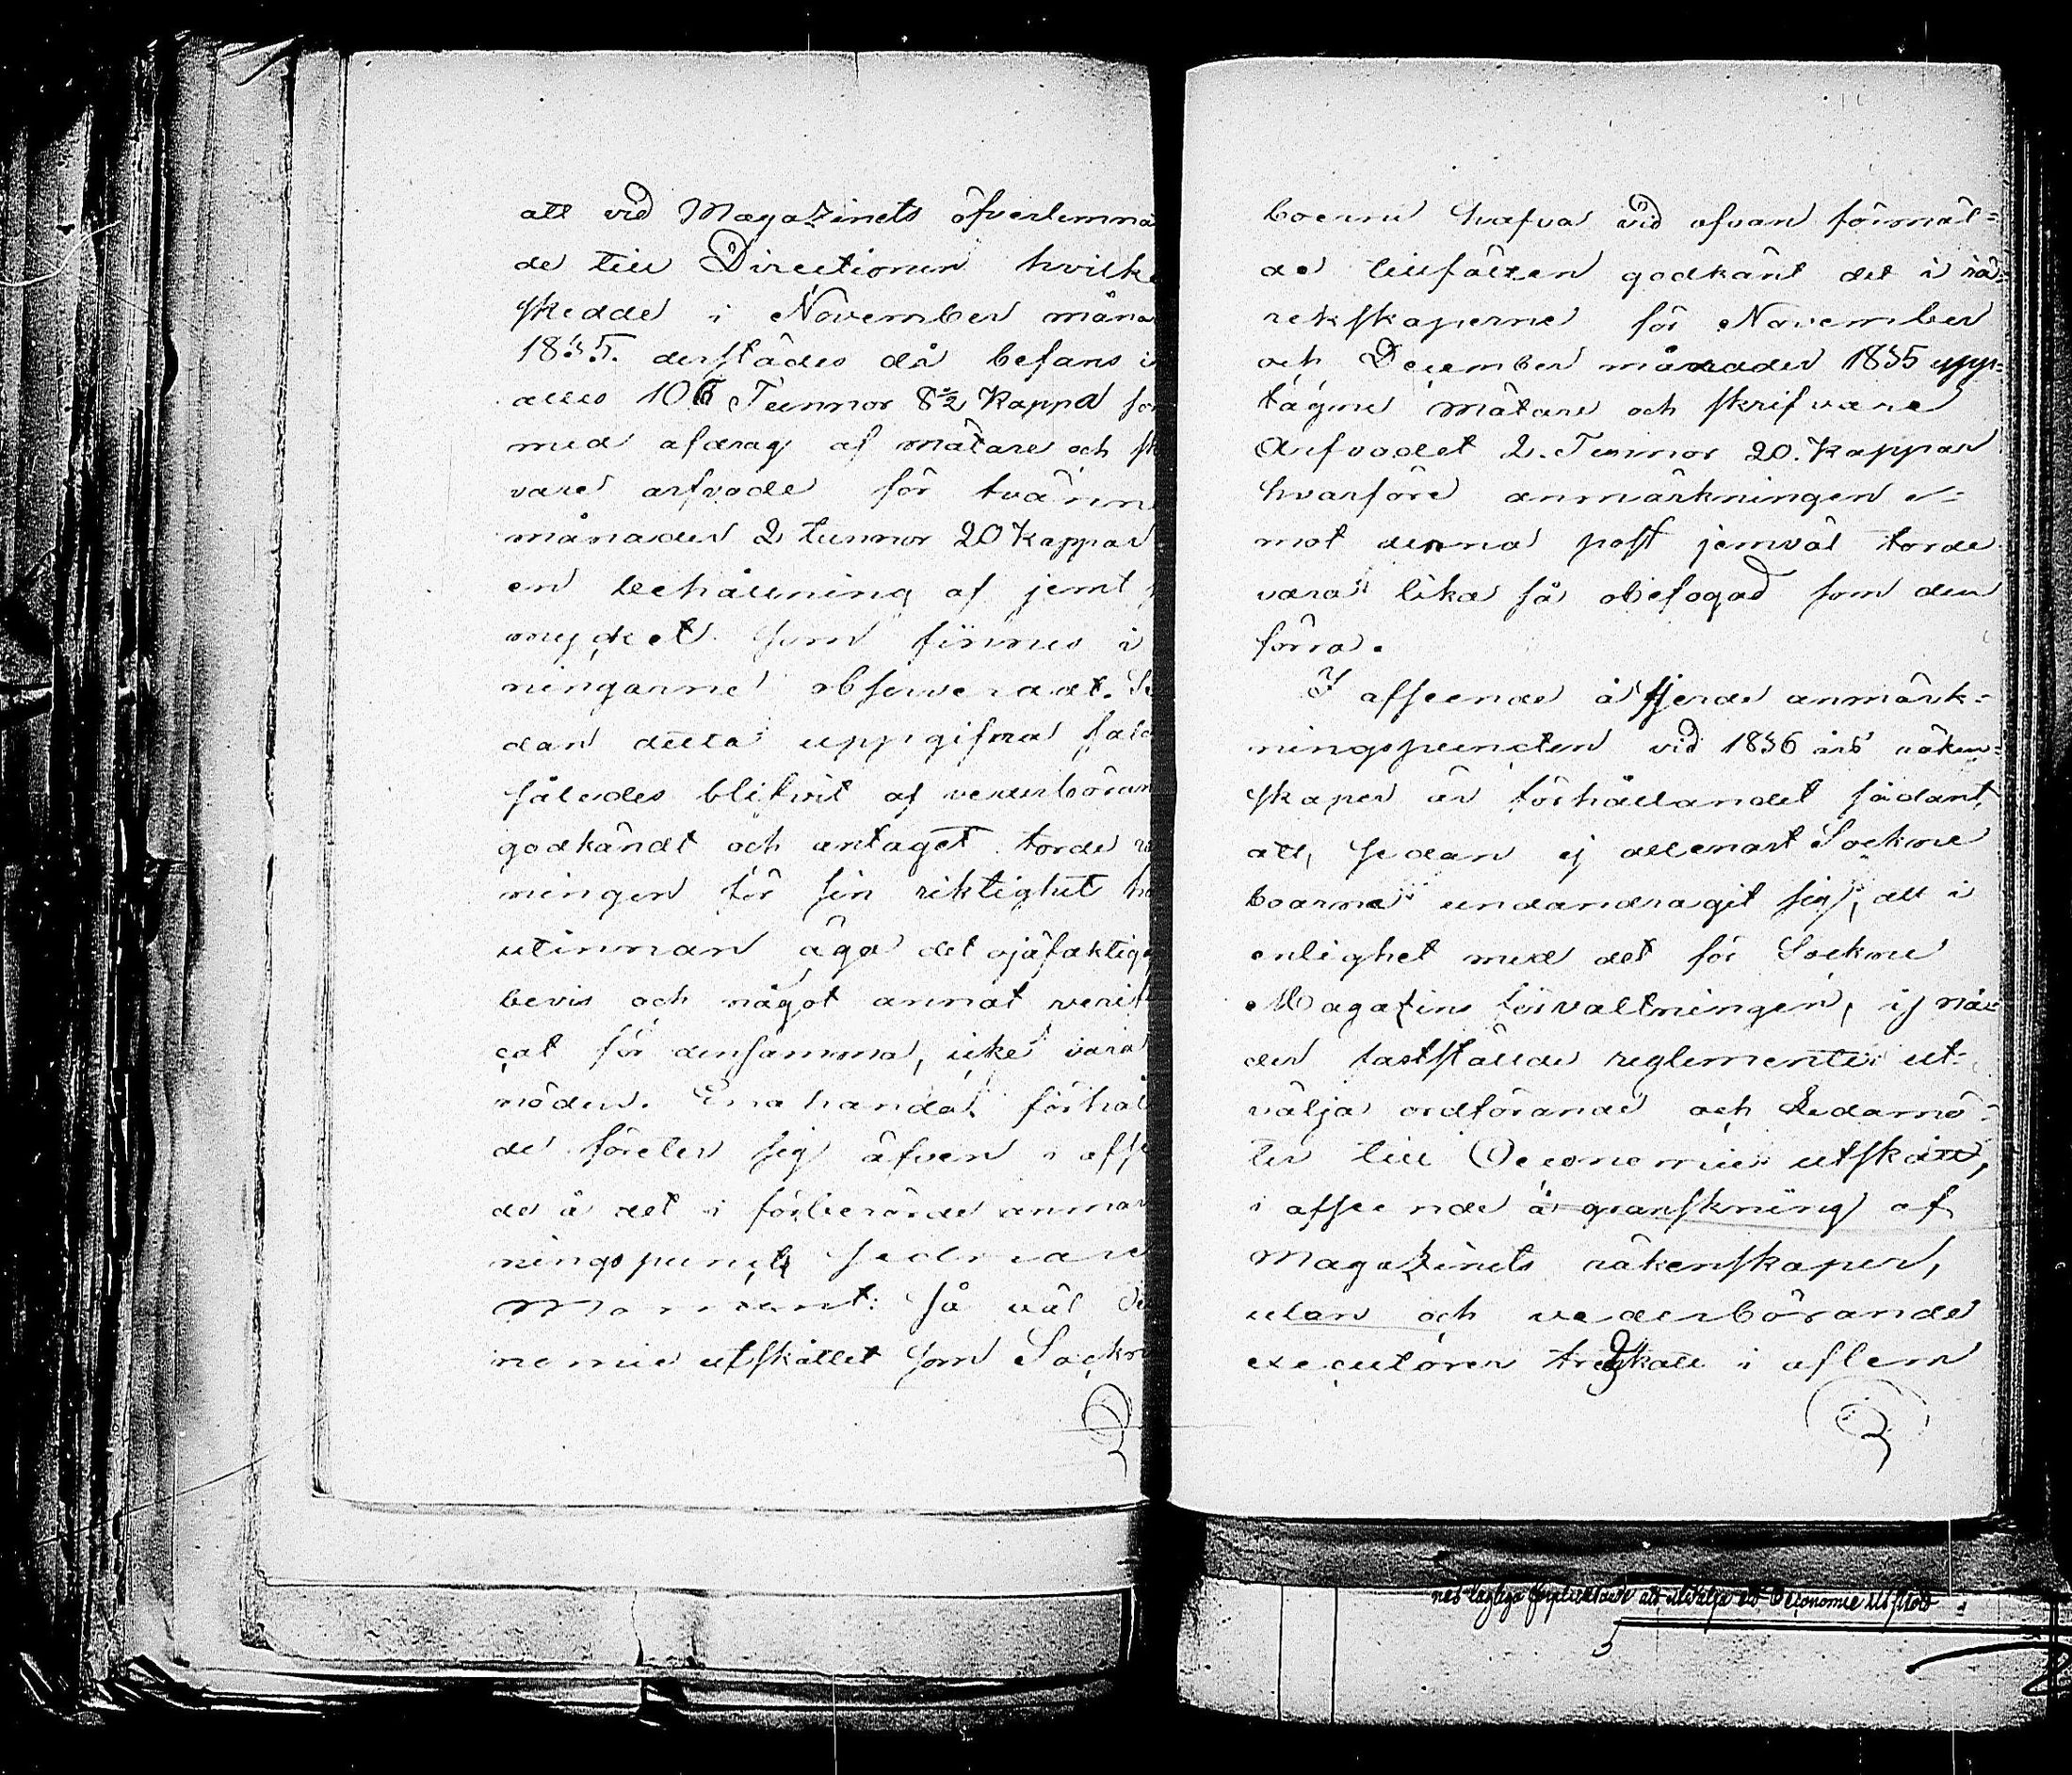 att vid Magazinets öfverlemna
de till Directionen hvilke
skedde i November måna
1835. derstädes då befans i
alles 106 Tunnor 8½ Kappa so
med afdrag af mätare och sk
vare arfvode för tvänn
månader 2 tunnor 20 Kappar
en behållning af jemt
mycket som finnes i
ningarne observeradt. Se
dan detta uppgifna
således blifvit af vederböran
godkändt och antaget torde
ningen för sin riktighet ha
utinnan äga det ojäfaktiga
bevis och något annat verifi
cat för densamma, icke vara
nöden. Enahanda förhål
de företer sig äfven i affse
de å det i förberörde anmär
ningspunct sednare
Moment: så väl Oe
nomie utskottet som Sockn
boerne hafva vid ofvan förmäl=
de tillfällen godkänt det i rä=
rekskaperne för November
och December månader 1835 upp=
tagne mätare och skrifvare
Arfvodet 2. Tunnor 20. Kappar
hvarföre anmärkningen e=
mot denna post jemväl torde
vara lika så obefogad som den
förra.
I afseende å fjerde anmärk=
ningspuncten vid 1836 års räken=
skaper är förhållandet sådant,
att, sedan ej allenast Sockne
boarne undandragit sig, att i
enlighet med det för Sockne
Magazins förvaltningen, i nå=
der fastställde reglemente ut=
välja ordförande och Ledamö=
ter till Oeconomie utskott,
i afseende å granskning af
Magazinets räkenskaper,
utan och vederbörande
executorer tredskats i aflem